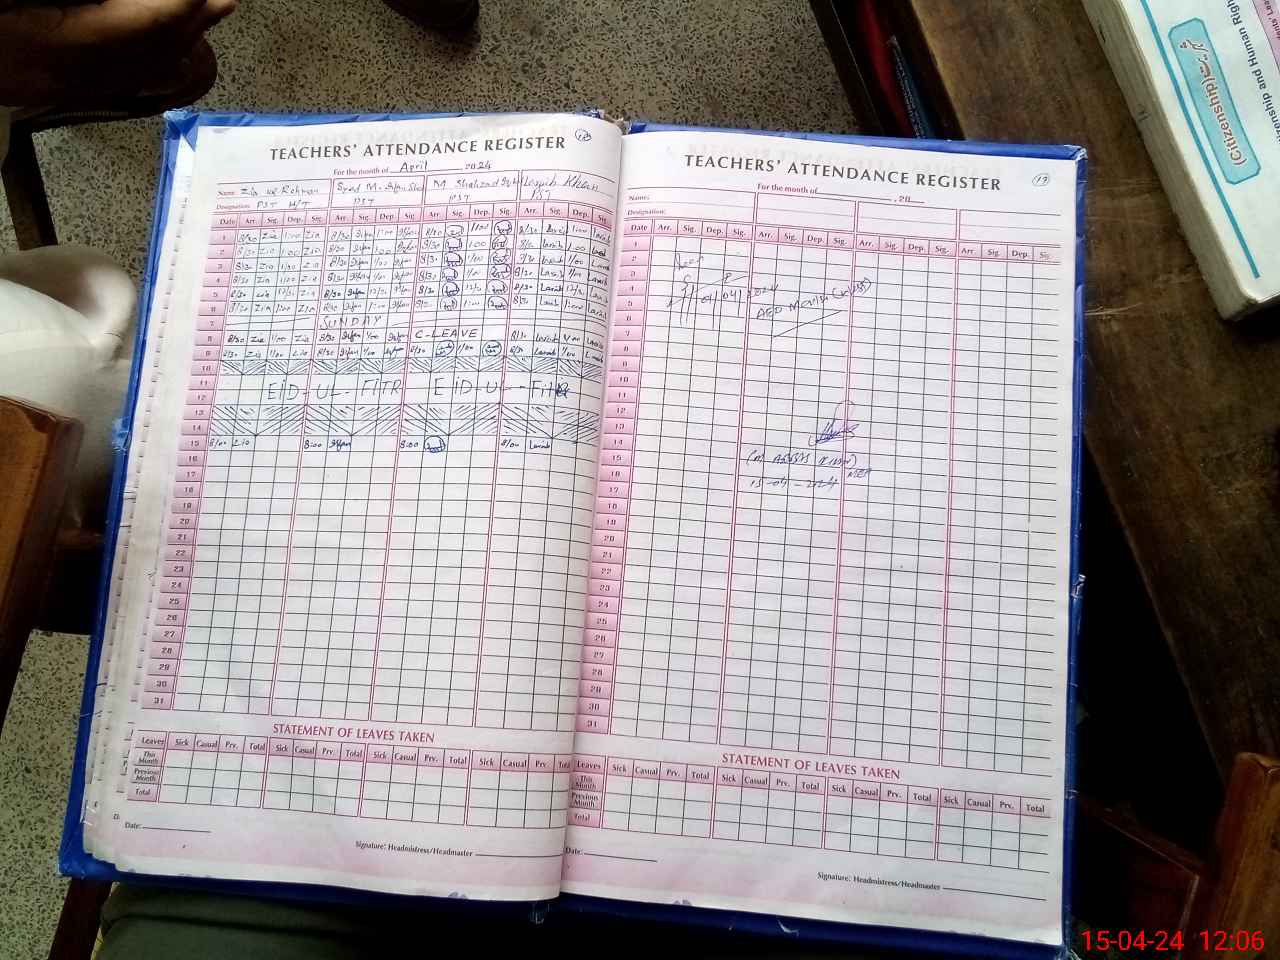 TEACHERS' ATTENDANCE REGISTER
For the month of April, 2024
Name: Zia ur Rehman Syed M. Irfan Shah M Shahzad Khan
Designation: PST H/T PST PST PST
Date Arr. Sig. Dep. Sig. Arr. Sig. Dep. Sig. Arr. Sig. Dep. Sig. Arr. Sig. Dep. Sig.
1 8/30 Zia 1:00 Zia 8/30 Irfan 1:00 Irfan 8/30 1:00 8/30 Laraib 1:00 Laraib
2 8/30 Zia 1:00 Zia 8/30 Irfan 1:00 Irfan 8/30 1:00 8/30 Laraib 1:00 Laraib
3 8/30 Zia 1/00 Zia 8/30 Irfan 1/00 Irfan 8/30 1/00 8/30 Laraib 1/00 Laraib
4 8/30 Zia 1:00 Zia 8/30 Irfan 1/00 Irfan 8/30 1/00 8/30 Laraib 1/00 Laraib
5 8/30 Zia 12/30 Zia 8/30 Irfan 12/30 Irfan 8/30 12/30 8/30 Laraib 12/30 Laraib
6 8/30 Zia 1:00 Zia 8/30 Irfan 1:00 Irfan 8/30 1:00 8/30 Laraib 1:00 Laraib
7 SUNDAY
8 8/30 Zia 1/00 Zia 8/30 Irfan 1/00 Irfan C-LEAVE 8/30 Laraib 1/00 Laraib
9 8/30 Zia 1/00 Zia 8/30 Irfan 1/00 Irfan 8/30 1/00 8/30 Laraib 1/00 Laraib
10
11 EID-UL-FITR EID-UL-FITR
12
13
14
15 8/00 Zia 8:00 Irfan 8:00 8/00 Laraib
16
17
18
19
20
21
22
23
24
25
26
27
28
29
30
31
STATEMENT OF LEAVES TAKEN
Leaves Sick Casual Prv. Total Sick Casual Prv. Total Sick Casual Prv. Total Sick Casual Prv. Total
This Month
Previous Month
Total
Date:
Signature: Headmistress/Headmaster
TEACHERS' ATTENDANCE REGISTER
17
For the month of , 20
Name:
Designation:
Date Arr. Sig. Dep. Sig. Arr. Sig. Dep. Sig. Arr. Sig. Dep. Sig. Arr. Sig. Dep. Sig.
1
2
3
4
5
6
7
8
9
10
11
12
13
14
15
16
17
18
19
20
21
22
23
24
25
26
27
28
29
30
31
Seen
04/04/2024
15-04-2024
STATEMENT OF LEAVES TAKEN
Leaves Sick Casual Prv. Total Sick Casual Prv. Total Sick Casual Prv. Total Sick Casual Prv. Total
This Month
Previous Month
Total
Date:
Signature: Headmistress/Headmaster
(Citizenship)
15-04-24 12:06